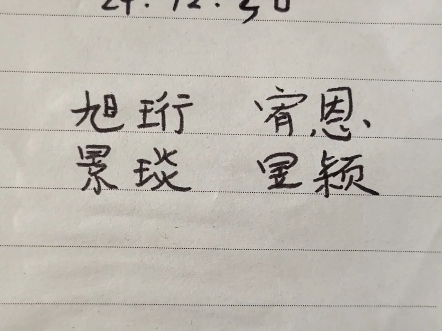 24.12.30
旭珩 宥恩、
景琰 昱颖